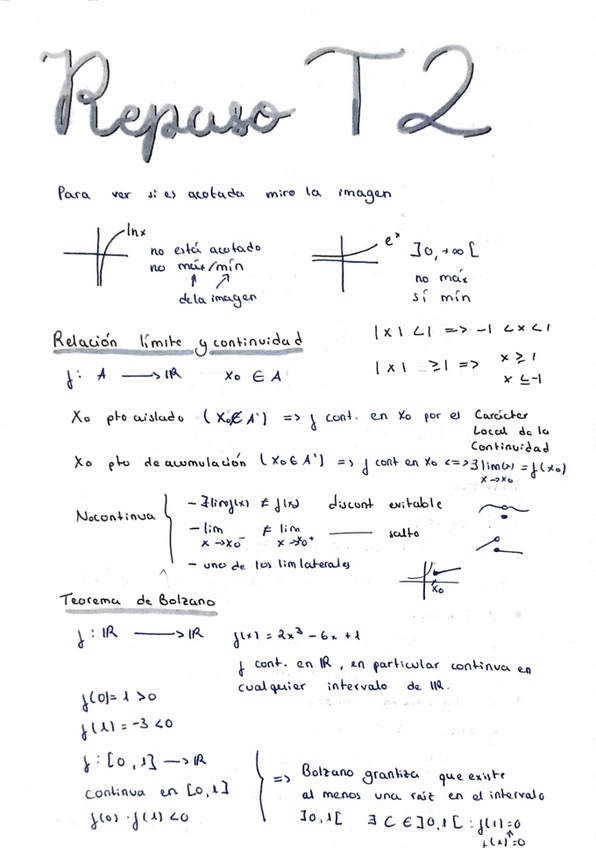 Repaso T2
Para ver si es acotada miro la imagen
lnx
no está acotado
no máx/mín
de la imagen
e^x
]0, +∞[
no máx
sí mín
Relación límite y continuidad
|x| < 1 => -1 < x < 1
f: A → IR x₀ ∈ A
|x| ≥ 1 => x ≥ 1
x ≤ -1
X₀ pto aislado (X₀ ∉ A') => f cont. en X₀ por el Carácter
Local de la
Continuidad
X₀ pto de acumulación (X₀ ∈ A') => f cont en X₀ <=> ∃ lim f(x) = f(x₀)
x→x₀
No continua
- ∃ lim f(x) ≠ f(x) discont evitable
- lim ≠ lim — salto
x→x₀⁻ x→x₀⁺
- uno de los lim laterales
x₀
Teorema de Bolzano
f: IR → IR f(x) = 2x³ - 6x + 1
f cont. en IR, en particular continua en
cualquier intervalo de IR.
f(0) = 1 > 0
f(1) = -3 < 0
f: [0,1] → IR
continua en [0,1]
f(0) · f(1) < 0
=> Bolzano grantiza que existe
al menos una raíz en el intervalo
]0,1[ ∃ C ∈ ]0,1[ : f(1)=0
f(x)=0